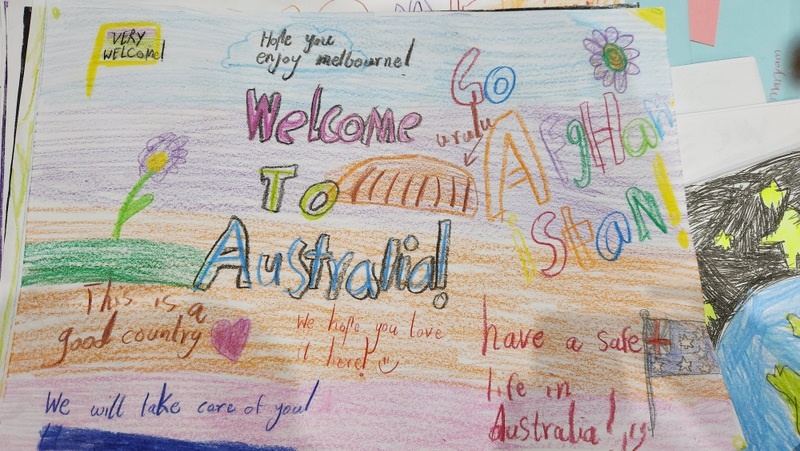 VERY
WELCOME!
Hope you
enjoy melbourne!
GO
AFGHAN
iStaN!
Welcome
urulu
To
Australia!
This is a
good country
We hope you love
it here!
have a safe
life in
Australia!
We will take care of you!
Maryam